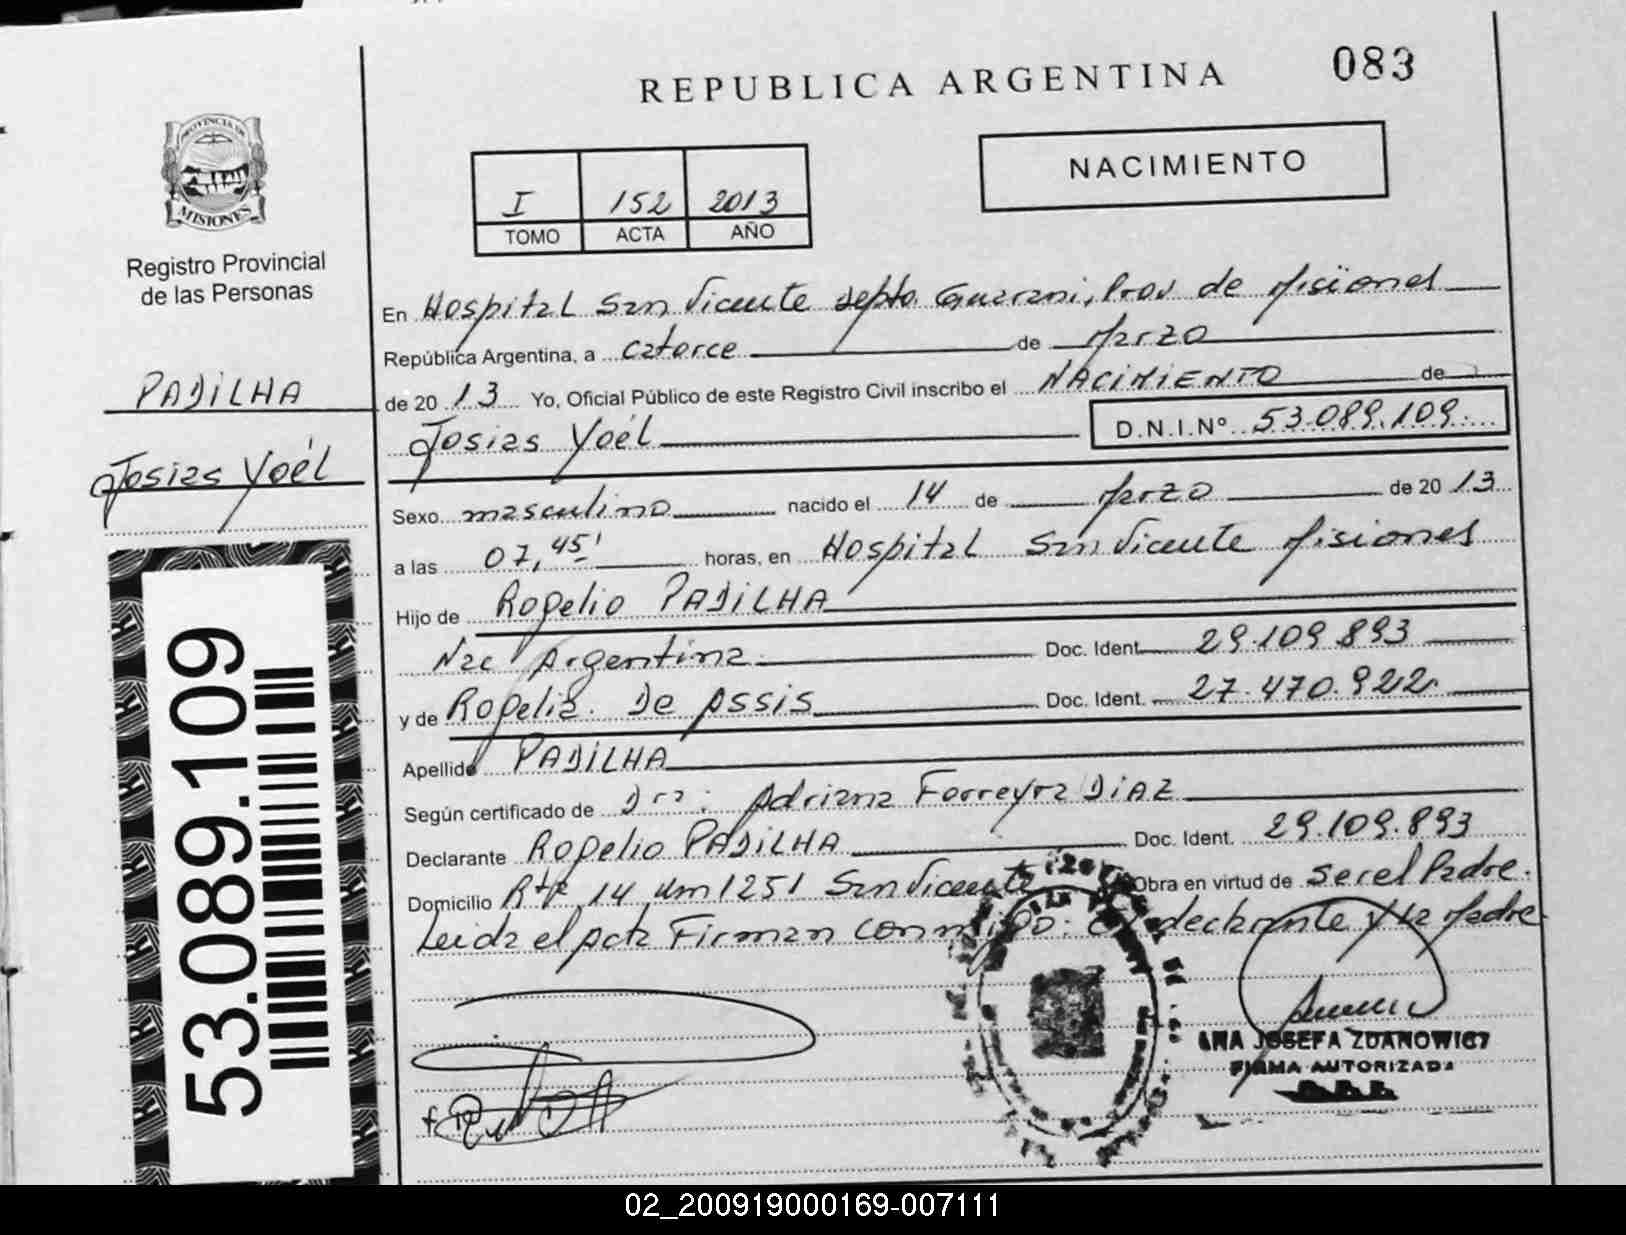 REPUBLICA ARGENTINA
083
PROVINCIA DE
MISIONES
Registro Provincial
de las Personas
I 152 2013
TOMO ACTA AÑO
NACIMIENTO
PADILHA
Josias Yoél
53.089.109
En Hospital San Vicente depto. Guarani, Prov de Misiones
República Argentina, a catorce de Marzo
de 20 13 Yo, Oficial Público de este Registro Civil inscribo el NACIMIENTO de
Josias Yoél D.N.I.Nº 53.089.109.
Sexo masculino nacido el 14 de Marzo de 20 13
a las 07,45' horas, en Hospital San Vicente Misiones
Hijo de Rogelio PADILHA
Nac Argentina Doc. Ident. 29.109.893
y de Rogelia De Assis Doc. Ident. 27.470.922
Apellido PADILHA
Según certificado de Dra: Adriana Ferreyra DIAZ
Declarante Rogelio PADILHA Doc. Ident. 29.109.893
Domicilio Rta 14 Km 1251 San Vicente Obra en virtud de ser el Padre.
Leida el Acta Firman conmigo: El declarante y la Madre
ANA JOSEFA ZDANOWICZ
FIRMA AUTORIZADA
02_200919000169-007111